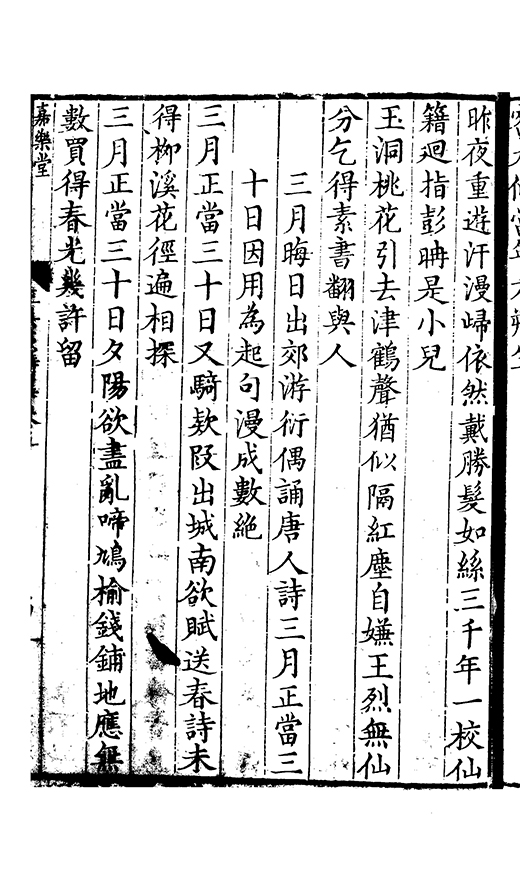 昨夜重遊汗漫歸依然戴勝髮如絲三千年一校仙
籍迴指彭聃是小兒
玉洞桃花引去津鶴聲猶似隔紅塵自嫌王烈無仙
分乞得素書翻與人
三月晦日出郊游衍偶誦唐人詩三月正當三
十日因用為起句漫成數絶
三月正當三十日又騎欵段出城南欲賦送春詩未
得柳溪花徑遍相探
三月正當三十日夕陽欲盡亂啼鳩榆錢鋪地應無
數買得春光幾許留
嘉樂堂